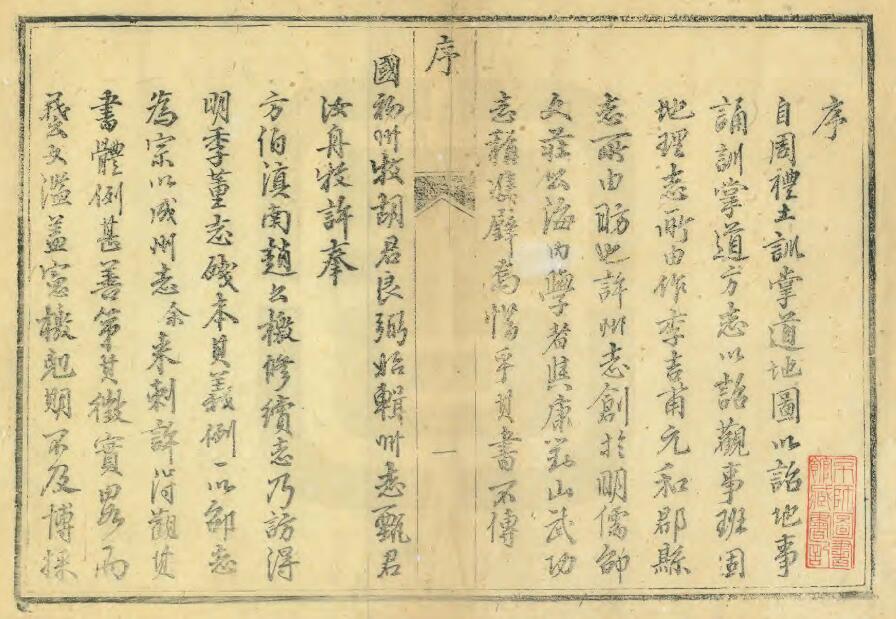 序
自周禮土訓掌道地圖以詔地事
誦訓掌道方志以詔觀事班固
地理志所由作李吉甫元和郡縣
志所由昉也許州志創於明儒邵
文莊公海內學者與康對山武功
志籍雙璧焉惜乎其書不傳
序
一
國初州牧胡君良弼始輯州志甄君
汝舟牧許奉
方伯滇南趙公檄修續志乃訪得
明季董志殘本其義例一以邵志
為宗以成州志余来刺許得觀其
書體例甚善第其徵實畧而
藝文濫盖憲檄尅期不及博採